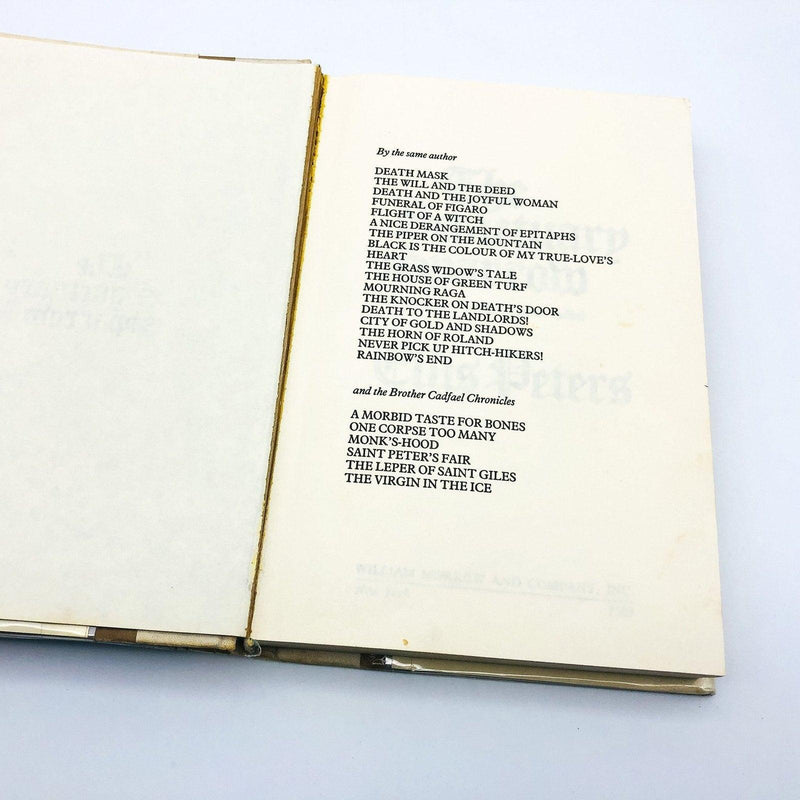 By the same author
DEATH MASK
THE WILL AND THE DEED
DEATH AND THE JOYFUL WOMAN
FUNERAL OF FIGARO
FLIGHT OF A WITCH
A NICE DERANGEMENT OF EPITAPHS
THE PIPER ON THE MOUNTAIN
BLACK IS THE COLOUR OF MY TRUE-LOVE'S
HEART
THE GRASS WIDOW'S TALE
THE HOUSE OF GREEN TURF
MOURNING RAGA
THE KNOCKER ON DEATH'S DOOR
DEATH TO THE LANDLORDS!
CITY OF GOLD AND SHADOWS
THE HORN OF ROLAND
NEVER PICK UP HITCH-HIKERS!
RAINBOW'S END
and the Brother Cadfael Chronicles
A MORBID TASTE FOR BONES
ONE CORPSE TOO MANY
MONK'S-HOOD
SAINT PETER'S FAIR
THE LEPER OF SAINT GILES
THE VIRGIN IN THE ICE
Ellis Peters
WILLIAM MORROW AND COMPANY, INC.